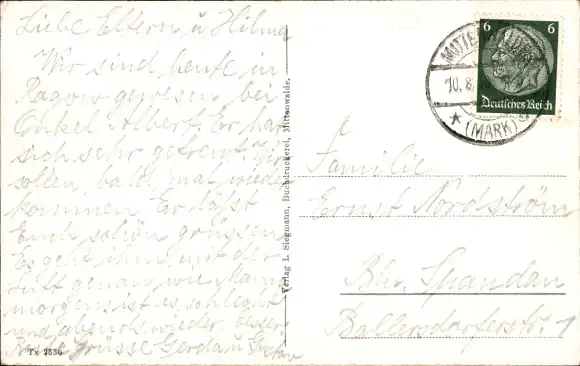 Liebe Eltern, u Hilma
Wir sind heute in
Ragow gewesen bei
Onkel Albert. Er hat
sich sehr gefreut. Wir
sollen bald mal wieder
kommen. Er läßt
Euch schön grüssen.
Es geht ihm mit der
Luft genau wie Mama
morgens ist es schlecht
und Abends wieder besser
Grüsse Gerda u Gustav
Tx 2536
Verlag L. Siegmann, Buchdruckerei, Mittenwalde.
MITTENWALDE
10.8.
(MARK)
6 6
Deutsches Reich
Familie
Ernst Nordström
Bln. Spandau
Ballersdorferstr. 1